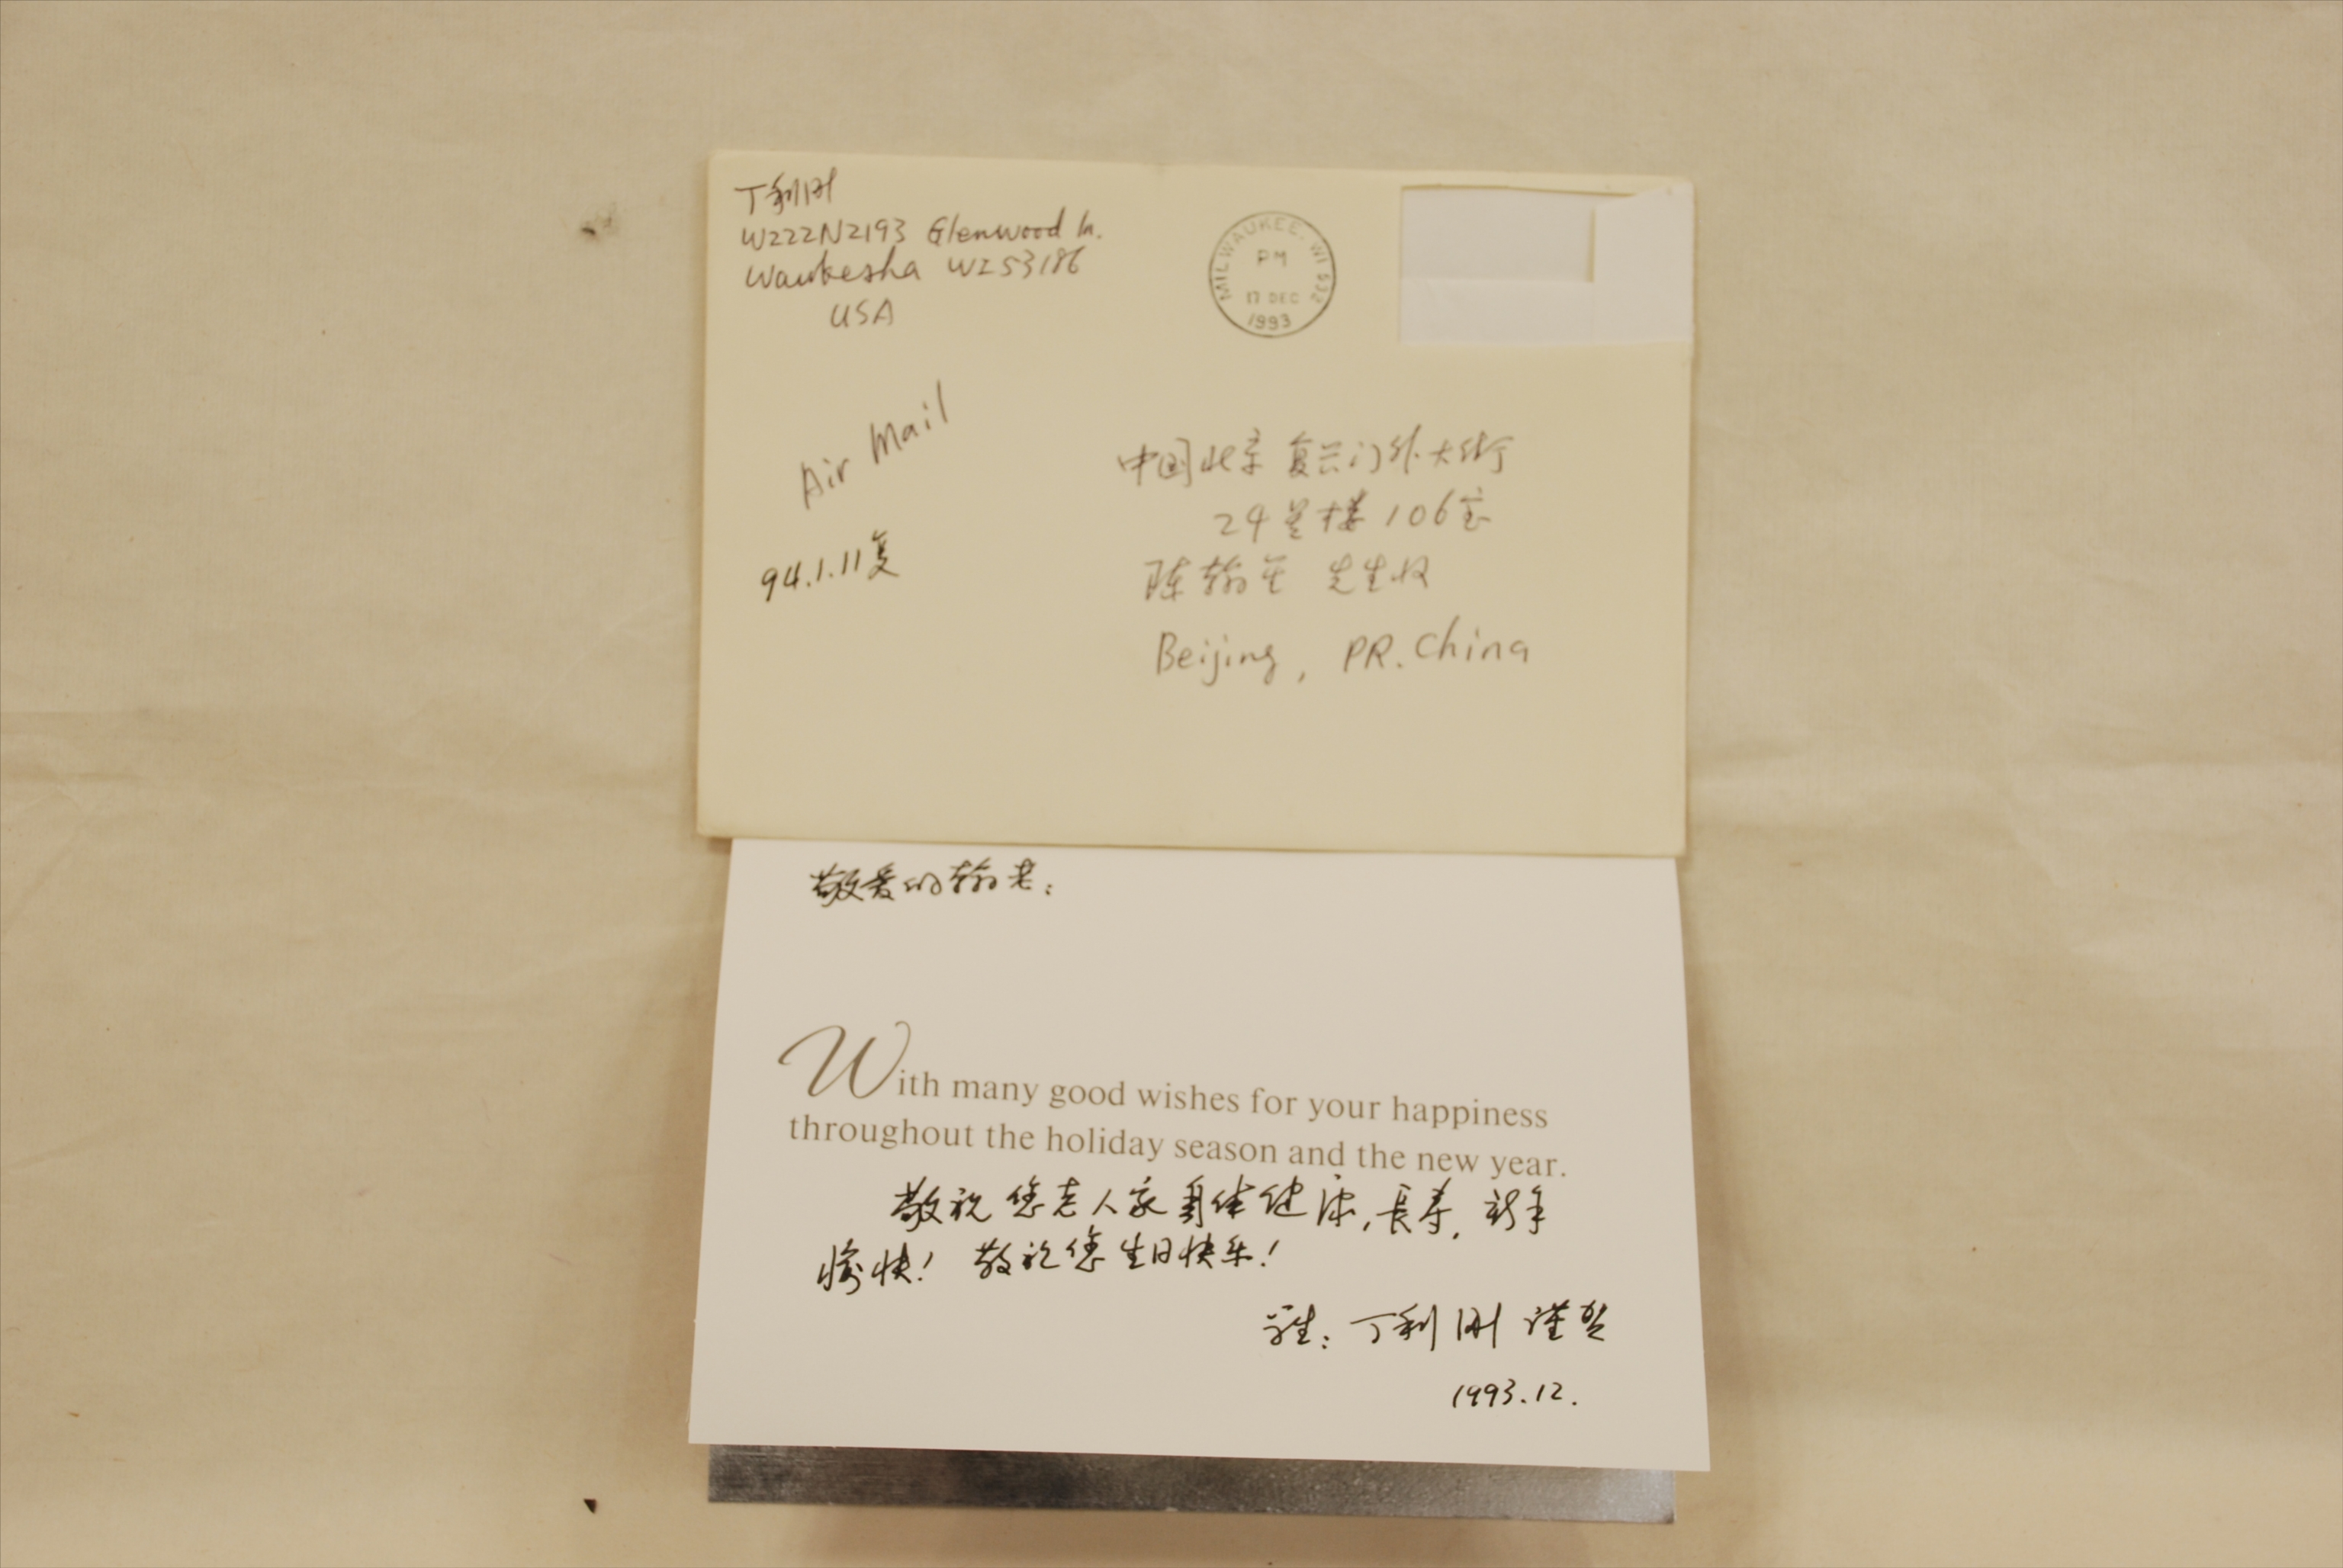 丁利刚
W222N2193 Glenwood Ln.
Waukesha WI 53186
USA
MILWAUKEE, WI 532
PM
17 DEC
1993
Air Mail
94.1.11复
中国北京复兴门外大街
24号楼106室
陈翰笙 先生收
Beijing, PR. China
敬爱的翰老:
With many good wishes for your happiness
throughout the holiday season and the new year.
敬祝您老人家身体健康,長寿,新年
愉快! 敬祝您生日快乐!
学生: 丁利刚 谨贺
1993.12.